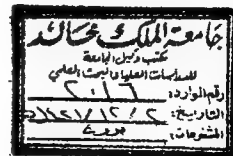 جامعة الملك خالد
مكتب وكيل الجامعة
للدراسات العليا والبحث العلمي
رقم الوارد: ٢٠١٦
التاريخ: ٢ / ١٢ / ١٤٢١
المشفوعات: